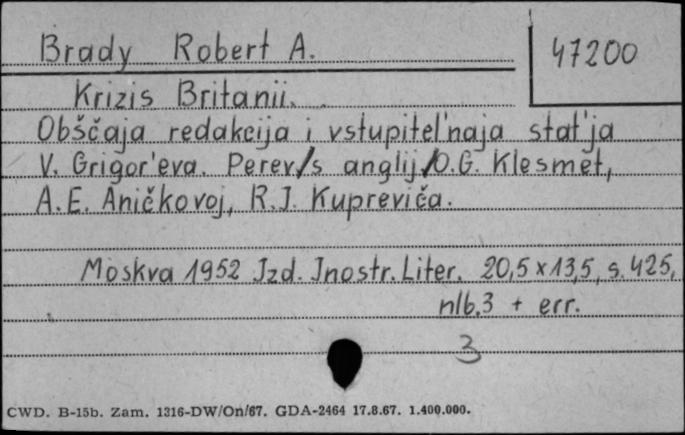 Brady Robert A.
47200
Krizis Britanii.
Obščaja redakcija i vstupitel'naja stat'ja
V. Grigor'eva. Perev/s anglij/O.G. Klesmet,
A.E. Aničkovoj, R.I. Kupreviča.
Moskva 1952 Izd. Inostr. Liter. 20,5 x 13,5, s. 425,
nlb. 3 + err.
3
CWD. B-15b. Zam. 1316-DW/On/67. GDA-2464 17.8.67. 1.400.000.